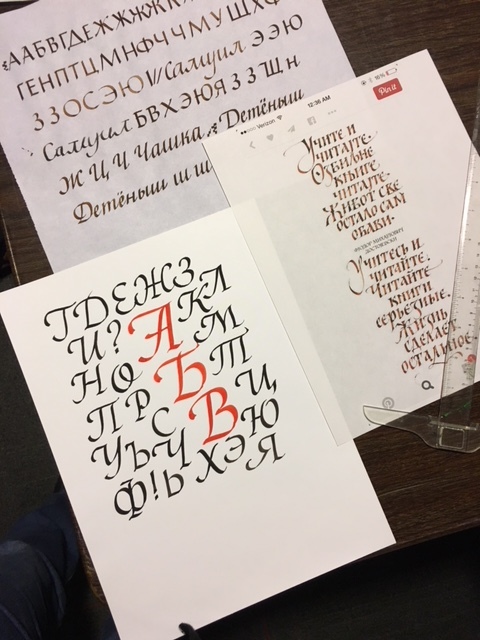 ААБВГДЕЖЖЖ
ГЕНПТЦМНФЧЧМУЩХФ
ЗЗОСЭЮ Самуил ЭЭЮ
Самуил БВХЭЮЯЗЗЩн
Ж Ц Ч Чашка Детёныш
Детёныш ш ш
Verizon
12:36 AM
96%
Pin it
Учите и
читајте.
Озбиљне
књиге
читајте.
Живот све
остало сам
обави.
ФЈОДОР МИХАЈЛОВИЧ
ДОСТОЈЕВСКИ
Учитесь и
читайте.
Читайте
книги
серьёзные.
Жизнь
сделает
остальное.
ГДЕЖЗ
И?АКЛ
НОБМ
ПРВТ
СЦ
УЪЧЮ
Ф!Ь ХЭЯ